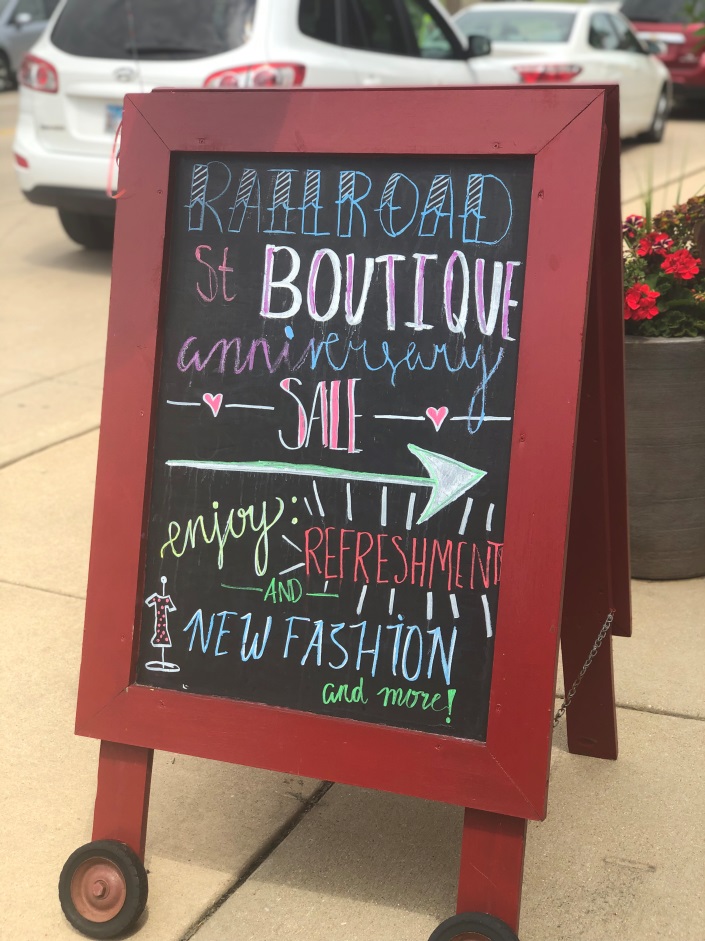 RAILROAD
St BOUTIQUE
anniversary
SALE
enjoy:
REFRESHMENT
AND
NEW FASHION
and more!